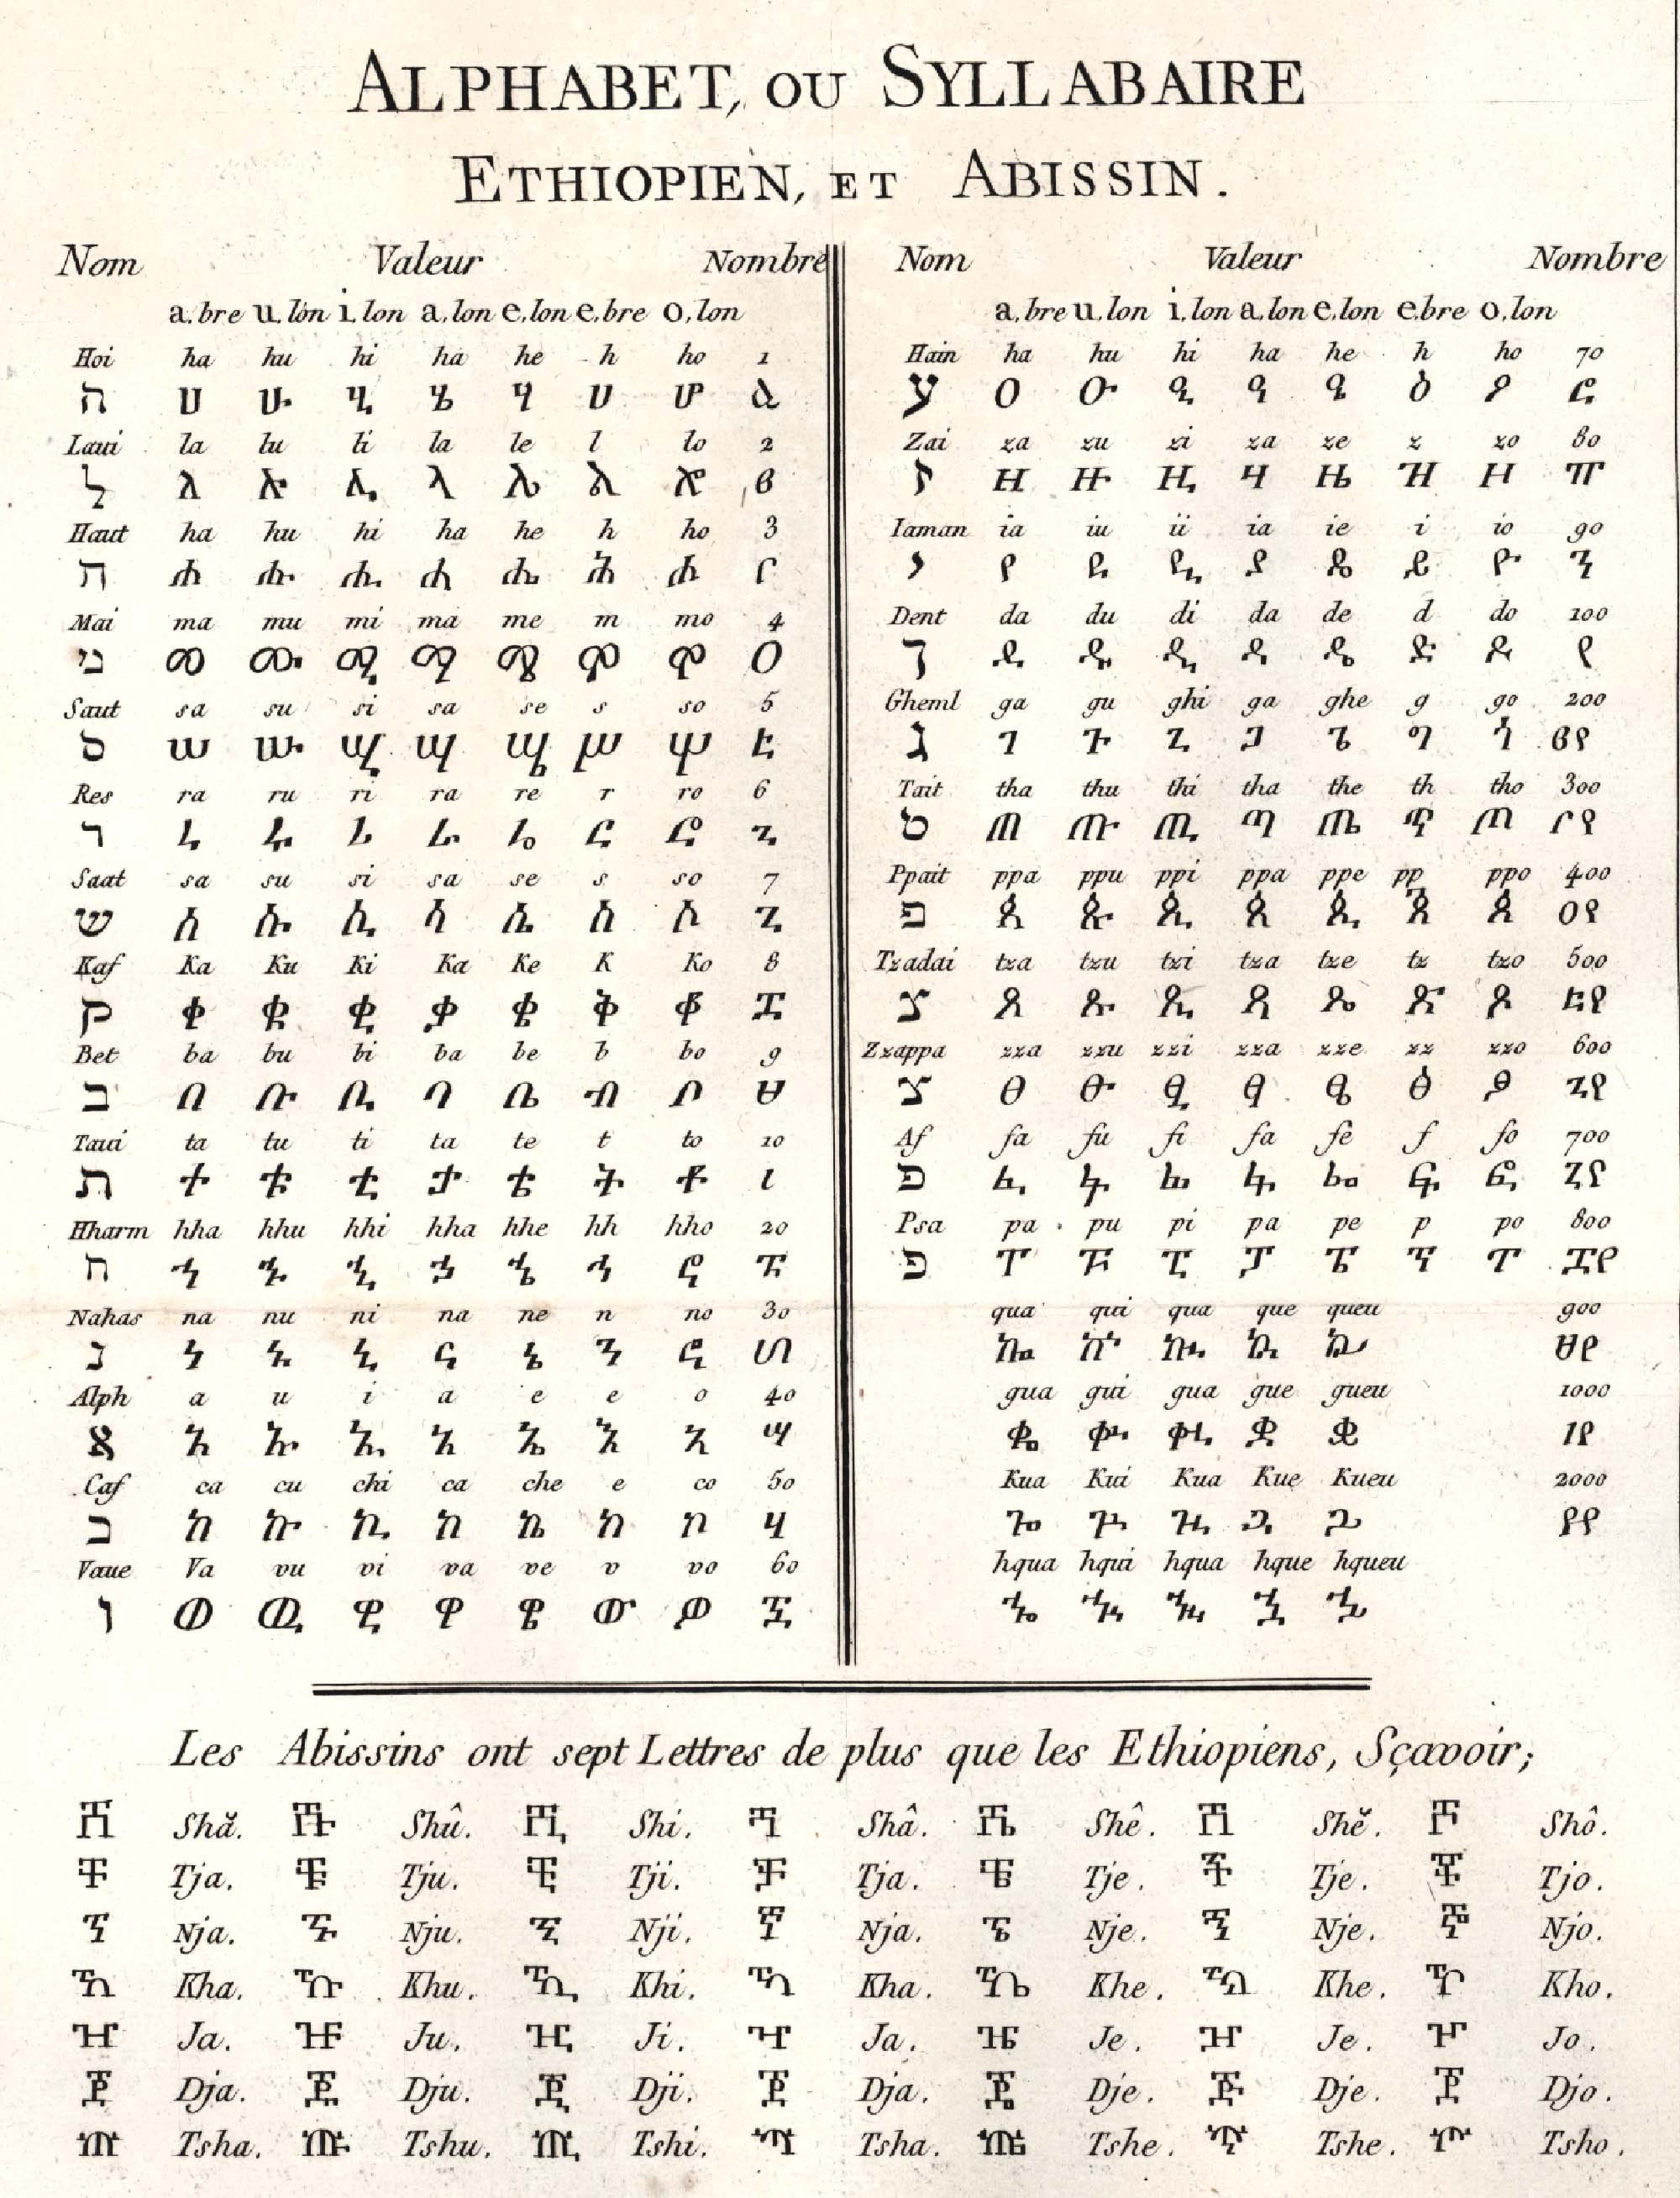 ALPHABET, OU SYLLABAIRE
ETHIOPIEN, ET ABISSIN.
Nom Valeur Nombre
a.bre u.lon i.lon a.lon e.lon e.bre o.lon
Hoi ha hu hi ha he h ho 1
ה ሀ ሁ ሂ ሃ ሄ ህ ሆ ፩
Laui la lu li la le l lo 2
ל ለ ሉ ሊ ላ ሌ ል ሎ ፪
Haut ha hu hi ha he h ho 3
ה ሐ ሑ ሒ ሓ ሔ ሕ ሖ ፫
Mai ma mu mi ma me m mo 4
מ መ ሙ ሚ ማ ሜ ም ሞ ፬
Saut sa su si sa se s so 5
ס ሠ ሡ ሢ ሣ ሤ ሥ ሦ ፭
Res ra ru ri ra re r ro 6
ר ረ ሩ ሪ ራ ሬ ር ሮ ፮
Saat sa su si sa se s so 7
ש ሰ ሱ ሲ ሳ ሴ ስ ሶ ፯
Kaf Ka Ku Ki Ka Ke K Ko 8
ק ቀ ቁ ቂ ቃ ቄ ቅ ቆ ፰
Bet ba bu bi ba be b bo 9
ב በ ቡ ቢ ባ ቤ ብ ቦ ፱
Taui ta tu ti ta te t to 10
ת ተ ቱ ቲ ታ ቴ ት ቶ ፲
Hharm hha hhu hhi hha hhe hh hho 20
ח ኀ ኁ ኂ ኃ ኄ ኅ ኆ ፳
Nahas na nu ni na ne n no 30
נ ነ ኑ ኒ ና ኔ ን ኖ ፴
Alph a u i a e e o 40
א አ ኡ ኢ ኣ ኤ እ ኦ ፵
Caf ca cu chi ca che e co 50
כ ከ ኩ ኪ ካ ኬ ክ ኮ ፶
Vaue Va vu vi va ve v vo 60
ו ወ ዉ ዊ ዋ ዌ ው ዎ ፷
Nom Valeur Nombre
a.bre u.lon i.lon a.lon e.lon e.bre o.lon
Hain ha hu hi ha he h ho 70
ע ዐ ዑ ዒ ዓ ዔ ዕ ዖ ፸
Zai za zu zi za ze z zo 80
ז ዘ ዙ ዚ ዛ ዜ ዝ ዞ ፹
Iaman ia iu ii ia ie i io 90
י የ ዩ ዪ ያ ዬ ይ ዮ ፺
Dent da du di da de d do 100
ד ደ ዱ ዲ ዳ ዴ ድ ዶ ፻
Gheml ga gu ghi ga ghe g go 200
ג ገ ጉ ጊ ጋ ጌ ግ ጎ ፪፻
Tait tha thu thi tha the th tho 300
ט ጠ ጡ ጢ ጣ ጤ ጥ ጦ ፫፻
Ppait ppa ppu ppi ppa ppe pp ppo 400
פ ጰ ጱ ጲ ጳ ጴ ጵ ጶ ፬፻
Tzadai tza tzu tzi tza tze tz tzo 500
צ ጸ ጹ ጺ ጻ ጼ ጽ ጾ ፭፻
Zzappa zza zzu zzi zza zze zz zzo 600
צ ፀ ፁ ፂ ፃ ፄ ፅ ፆ ፮፻
Af fa fu fi fa fe f fo 700
פ ፈ ፉ ፊ ፋ ፌ ፍ ፎ ፯፻
Psa pa pu pi pa pe p po 800
פ ፐ ፑ ፒ ፓ ፔ ፕ ፖ ፰፻
qua qui qua que queu 900
ኰ ኲ ኳ ኴ ኵ ፱፻
gua gui gua gue gueu 1000
ቈ ቊ ቋ ቌ ቍ ፲፻
Kua Kui Kua Kue Kueu 2000
ጐ ጒ ጓ ጔ ጕ ፻፻
hqua hqui hqua hque hqueu
ኈ ኊ ኋ ኌ ኍ
Les Abissins ont sept Lettres de plus que les Ethiopiens, Sçavoir;
ሸ Shă. ሹ Shû. ሺ Shi. ሻ Shâ. ሼ Shê. ሽ Shĕ. ሾ Shô.
ቸ Tja. ቹ Tju. ቺ Tji. ቻ Tja. ቼ Tje. ች Tje. ቾ Tjo.
ኘ Nja. ኙ Nju. ኚ Nji. ኛ Nja. ኜ Nje. ኝ Nje. ኞ Njo.
ኸ Kha. ኹ Khu. ኺ Khi. ኻ Kha. ኼ Khe. ኽ Khe. ኾ Kho.
ዠ Ja. ዡ Ju. ዢ Ji. ዣ Ja. ዤ Je. ዥ Je. ዦ Jo.
ጀ Dja. ጁ Dju. ጂ Dji. ጃ Dja. ጄ Dje. ጅ Dje. ጆ Djo.
ጨ Tsha. ጩ Tshu. ጪ Tshi. ጫ Tsha. ጬ Tshe. ጭ Tshe. ጮ Tsho.